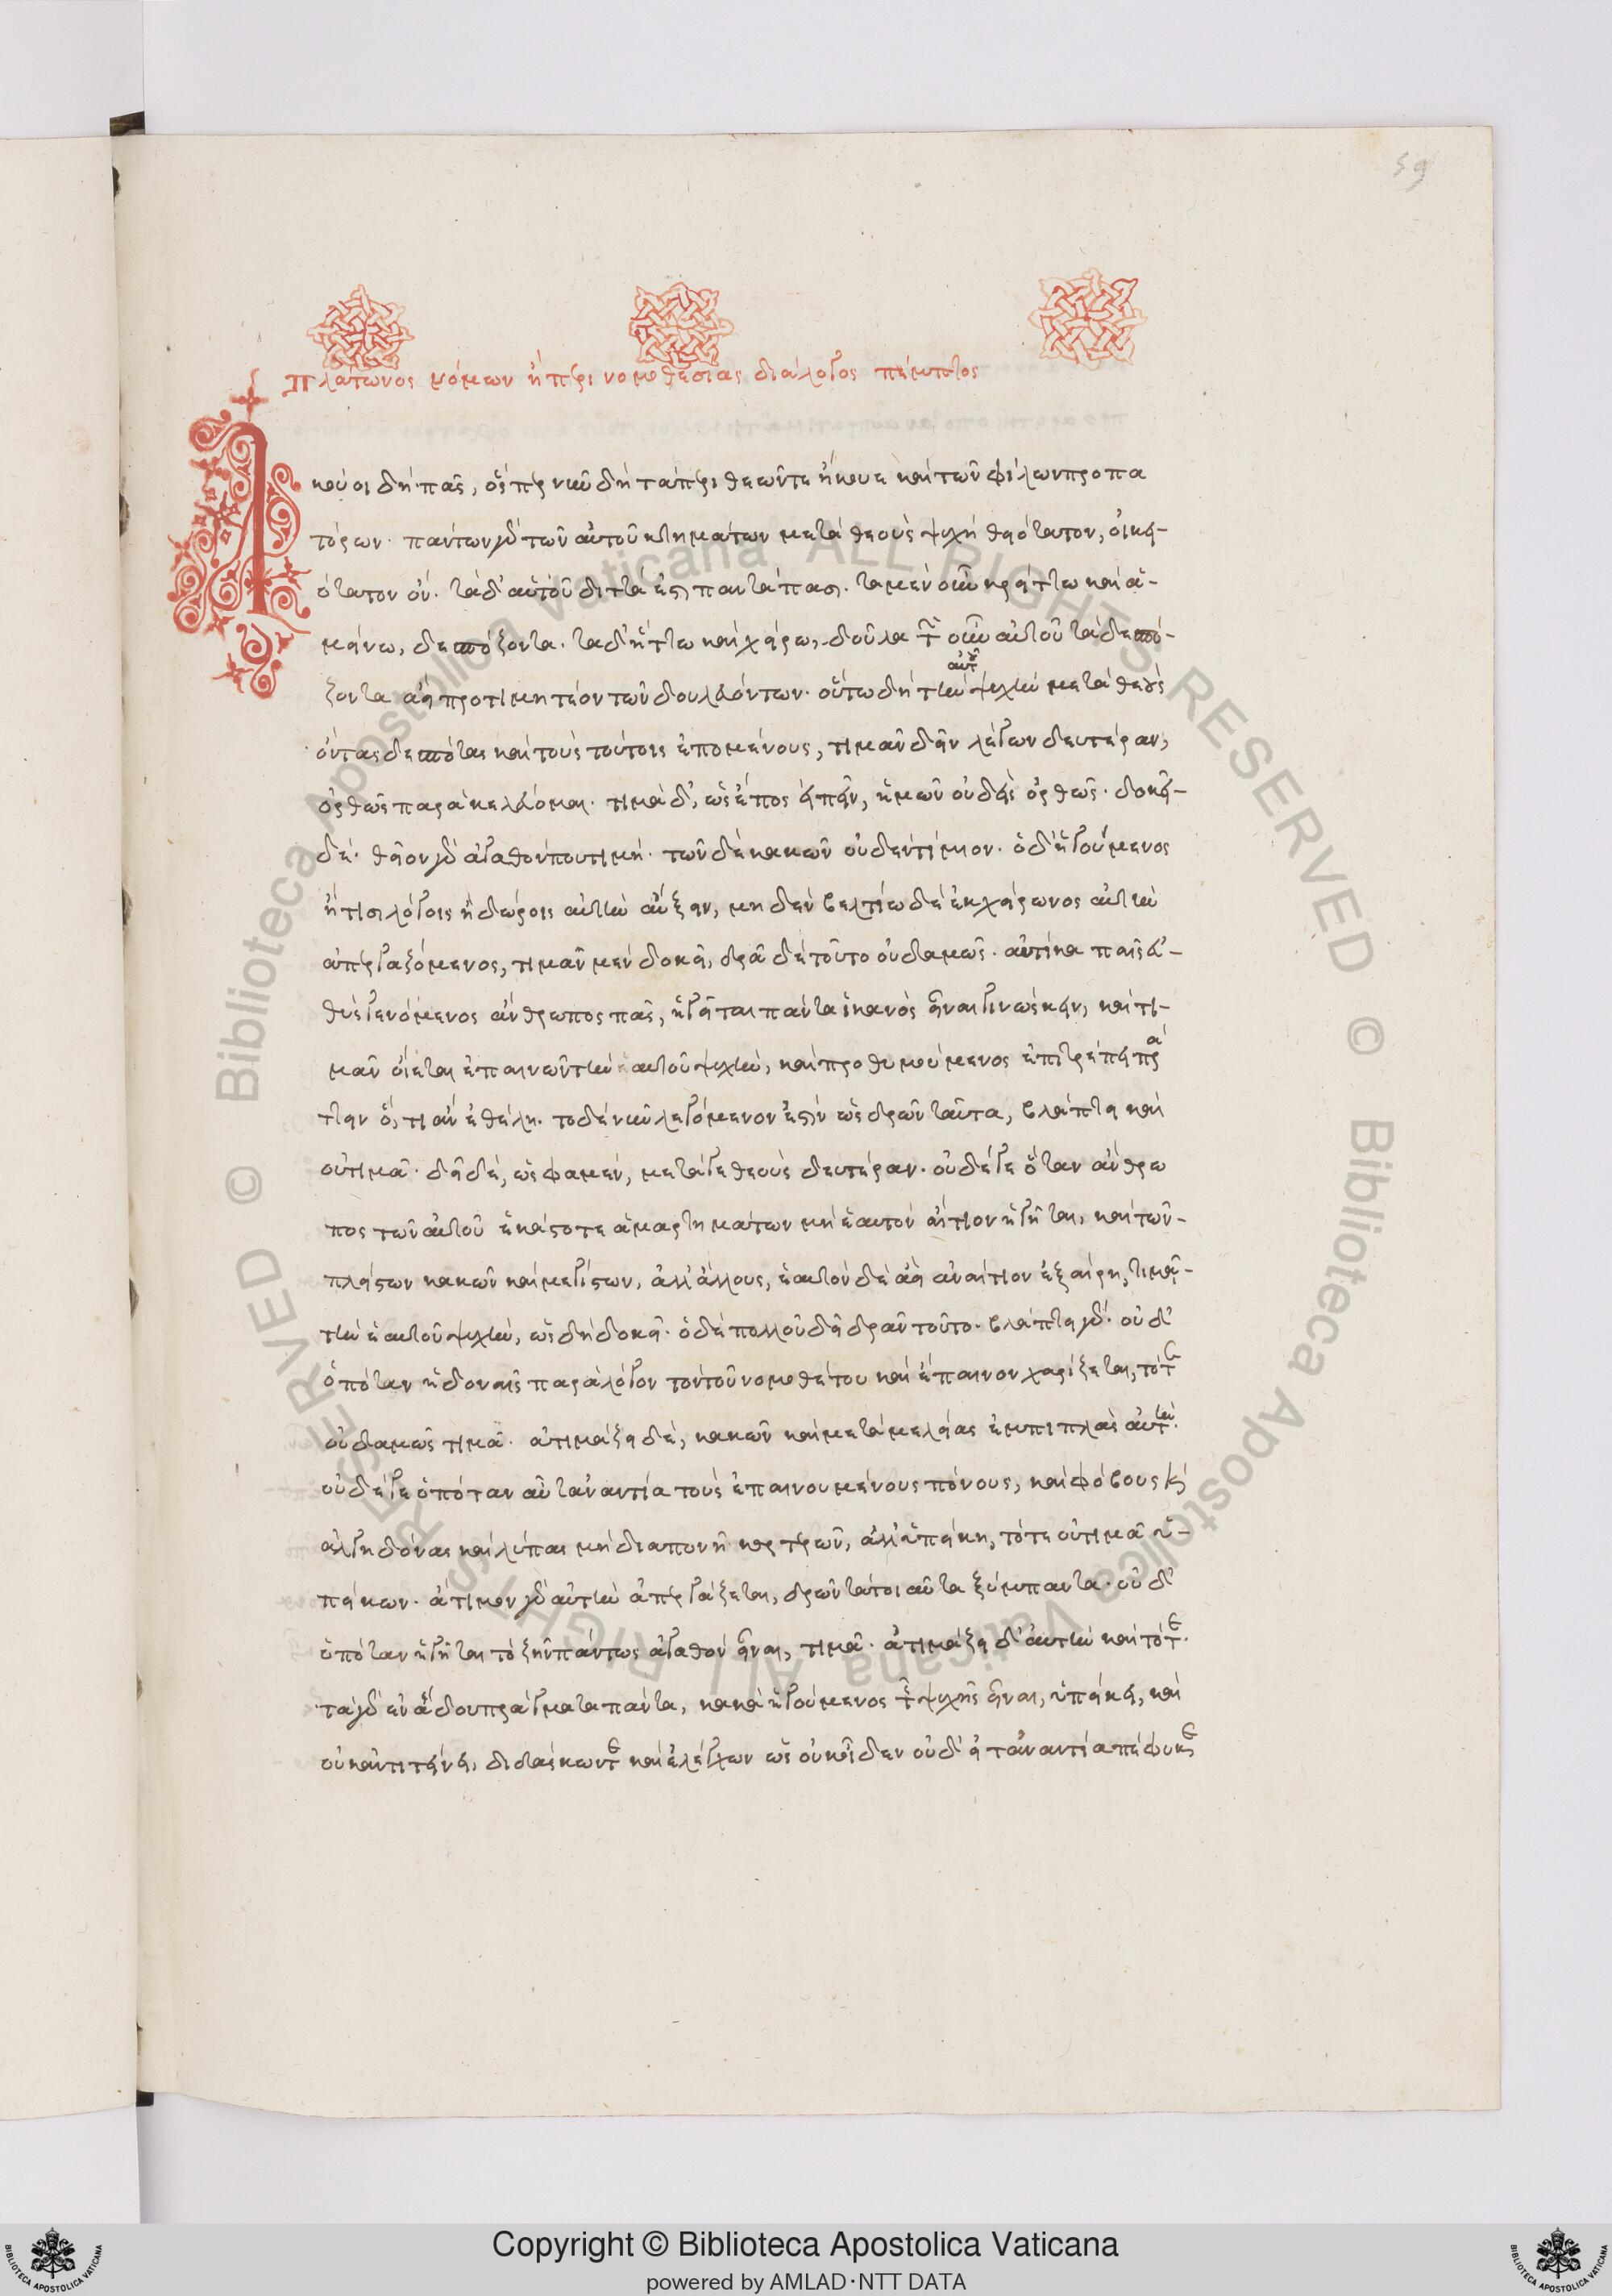 59
πλάτωνος νόμων ἢ περὶ νομοθεσίας διάλογος πέμπτος
Ἀκούοι δὴ πᾶς, ὅσπερ νῦν δὴ τὰ περὶ θεῶν τε ἤκουε καὶ τῶν φίλων προπα
τόρων· πάντων γὰρ τῶν αὑτοῦ κτημάτων μετὰ θεοὺς ψυχὴ θειότατον, οἰκει-
ότατον ὄν. τὰ δ' αὑτοῦ διττά ἐστι παντάπασι. τὰ μὲν οὖν κρείττω καὶ ἀ-
μείνω, δεσπόζοντα. τὰ δ' ἥττω καὶ χείρω, δοῦλα τῶν οὖν αὑτοῦ τὰ δεσπό-
αὐτοῦ
ζοντα ἀεὶ προτιμητέον τῶν δουλευόντων. οὕτω δὴ τὴν ψυχὴν μετὰ θεοὺς
ὄντας δεσπότας καὶ τοὺς τούτοις ἑπομένους, τιμᾶν δεῖν λέγων δευτέραν,
ὀρθῶς παρακελεύομαι. τιμᾷ δ', ὡς ἔπος εἰπεῖν, ἡμῶν οὐδεὶς ὀρθῶς. δοκεῖ-
δέ. θεῖον γὰρ ἀγαθόν που τιμή. τῶν δὲ κακῶν οὐδὲν τίμιον. ὁ δ' ἡγούμενος
ἤ τισι λόγοις ἢ δώροις αὐτὴν αὔξειν, μηδὲν βελτίω δὲ ἐκ χείρονος αὐτὴν
ἀπεργαζόμενος, τιμᾶν μὲν δοκεῖ, δρᾷ δὲ τοῦτο οὐδαμῶς. αὐτίκα παῖς εὐ-
θὺς γενόμενος ἄνθρωπος πᾶς, ἡγεῖται πάντα ἱκανὸς εἶναι γινώσκειν, καὶ τι-
μᾶν οἴεται ἐπαινῶν τὴν ἑαυτοῦ ψυχὴν, καὶ προθυμούμενος ἐπιτρέπει πρά
ττειν ὅ, τι ἂν ἐθέλῃ. τὸ δὲ νῦν λεγόμενόν ἐστιν ὡς δρῶν ταῦτα, βλάπτει καὶ
οὐ τιμᾷ. δεῖ δέ, ὥς φαμεν, μετά γε θεοὺς δευτέραν. οὐδέ γε ὅταν ἄνθρω
πος τῶν αὑτοῦ ἑκάστοτε ἁμαρτημάτων μὴ ἑαυτὸν αἴτιον ἡγῆται, καὶ τῶν-
πλείστων κακῶν καὶ μεγίστων, ἀλλ' ἄλλους, ἑαυτὸν δὲ ἀεὶ ἀναίτιον ἐξαίρῃ, τιμῶν-
τὴν ἑαυτοῦ ψυχὴν, ὡς δὴ δοκεῖ. ὁ δὲ πολλοῦ δεῖ δρᾶν τοῦτο. βλάπτει γὰρ. οὐδ'
ὁπόταν ἡδοναῖς παρὰ λόγον τὸν τοῦ νομοθέτου καὶ ἔπαινον χαρίζεται, τότε
οὐδαμῶς τιμᾷ. ἀτιμάζει δὲ, κακῶν καὶ μεταμελείας ἐμπιπλὰς αὐτήν.
οὐδέ γε ὁπόταν αὖ τἀναντία τοὺς ἐπαινουμένους πόνους, καὶ φόβους καὶ
ἀλγηδόνας καὶ λύπας μὴ διαπονῇ καρτερῶν, ἀλλ' ὑπείκῃ, τότε οὐ τιμᾷ ὑ-
πείκων. ἄτιμον γὰρ αὐτὴν ἀπεργάζεται, δρῶν τὰ τοιαῦτα ξύμπαντα. οὐδ'
ὁπόταν ἡγῆται τὸ ζῆν πάντως ἀγαθὸν εἶναι, τιμᾷ. ἀτιμάζει δ' αὐτὴν καὶ τότε.
τὰ γὰρ ἐν ᾅδου πράγματα πάντα, κακὰ ἡγούμενος τῆς ψυχῆς εἶναι, ὑπείκει, καὶ
οὐκ ἀντιτείνει, διδάσκων τε καὶ ἐλέγχων ὡς οὐκ οἶδεν οὐδ' εἰ τἀναντία πέφυκε
Copyright © Biblioteca Apostolica Vaticana
powered by AMLAD·NTT DATA